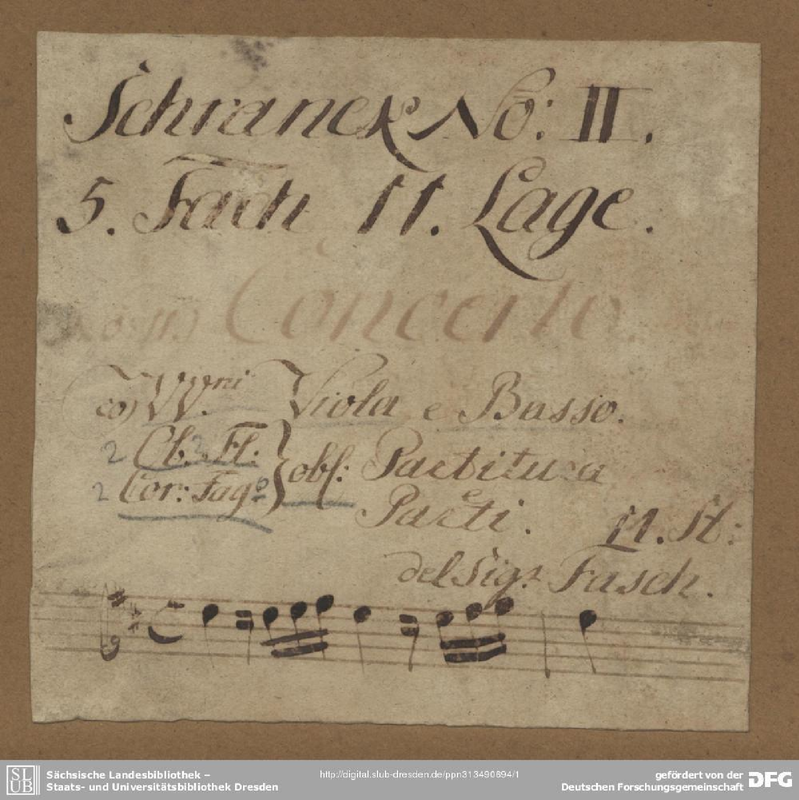 Schranck No: II.
5. Fach 11. Lage.
Concerto.
co VV.ni Viola e Basso.
2 Ob. 2 Fl. obl: Partitura
2 Cor: Fag.o e Parti. 11. St:
del Sig.r Fasch.
SLUB
Sächsische Landesbibliothek –
Staats- und Universitätsbibliothek Dresden
http://digital.slub-dresden.de/ppn313490894/1
gefördert von der
Deutschen Forschungsgemeinschaft
DFG